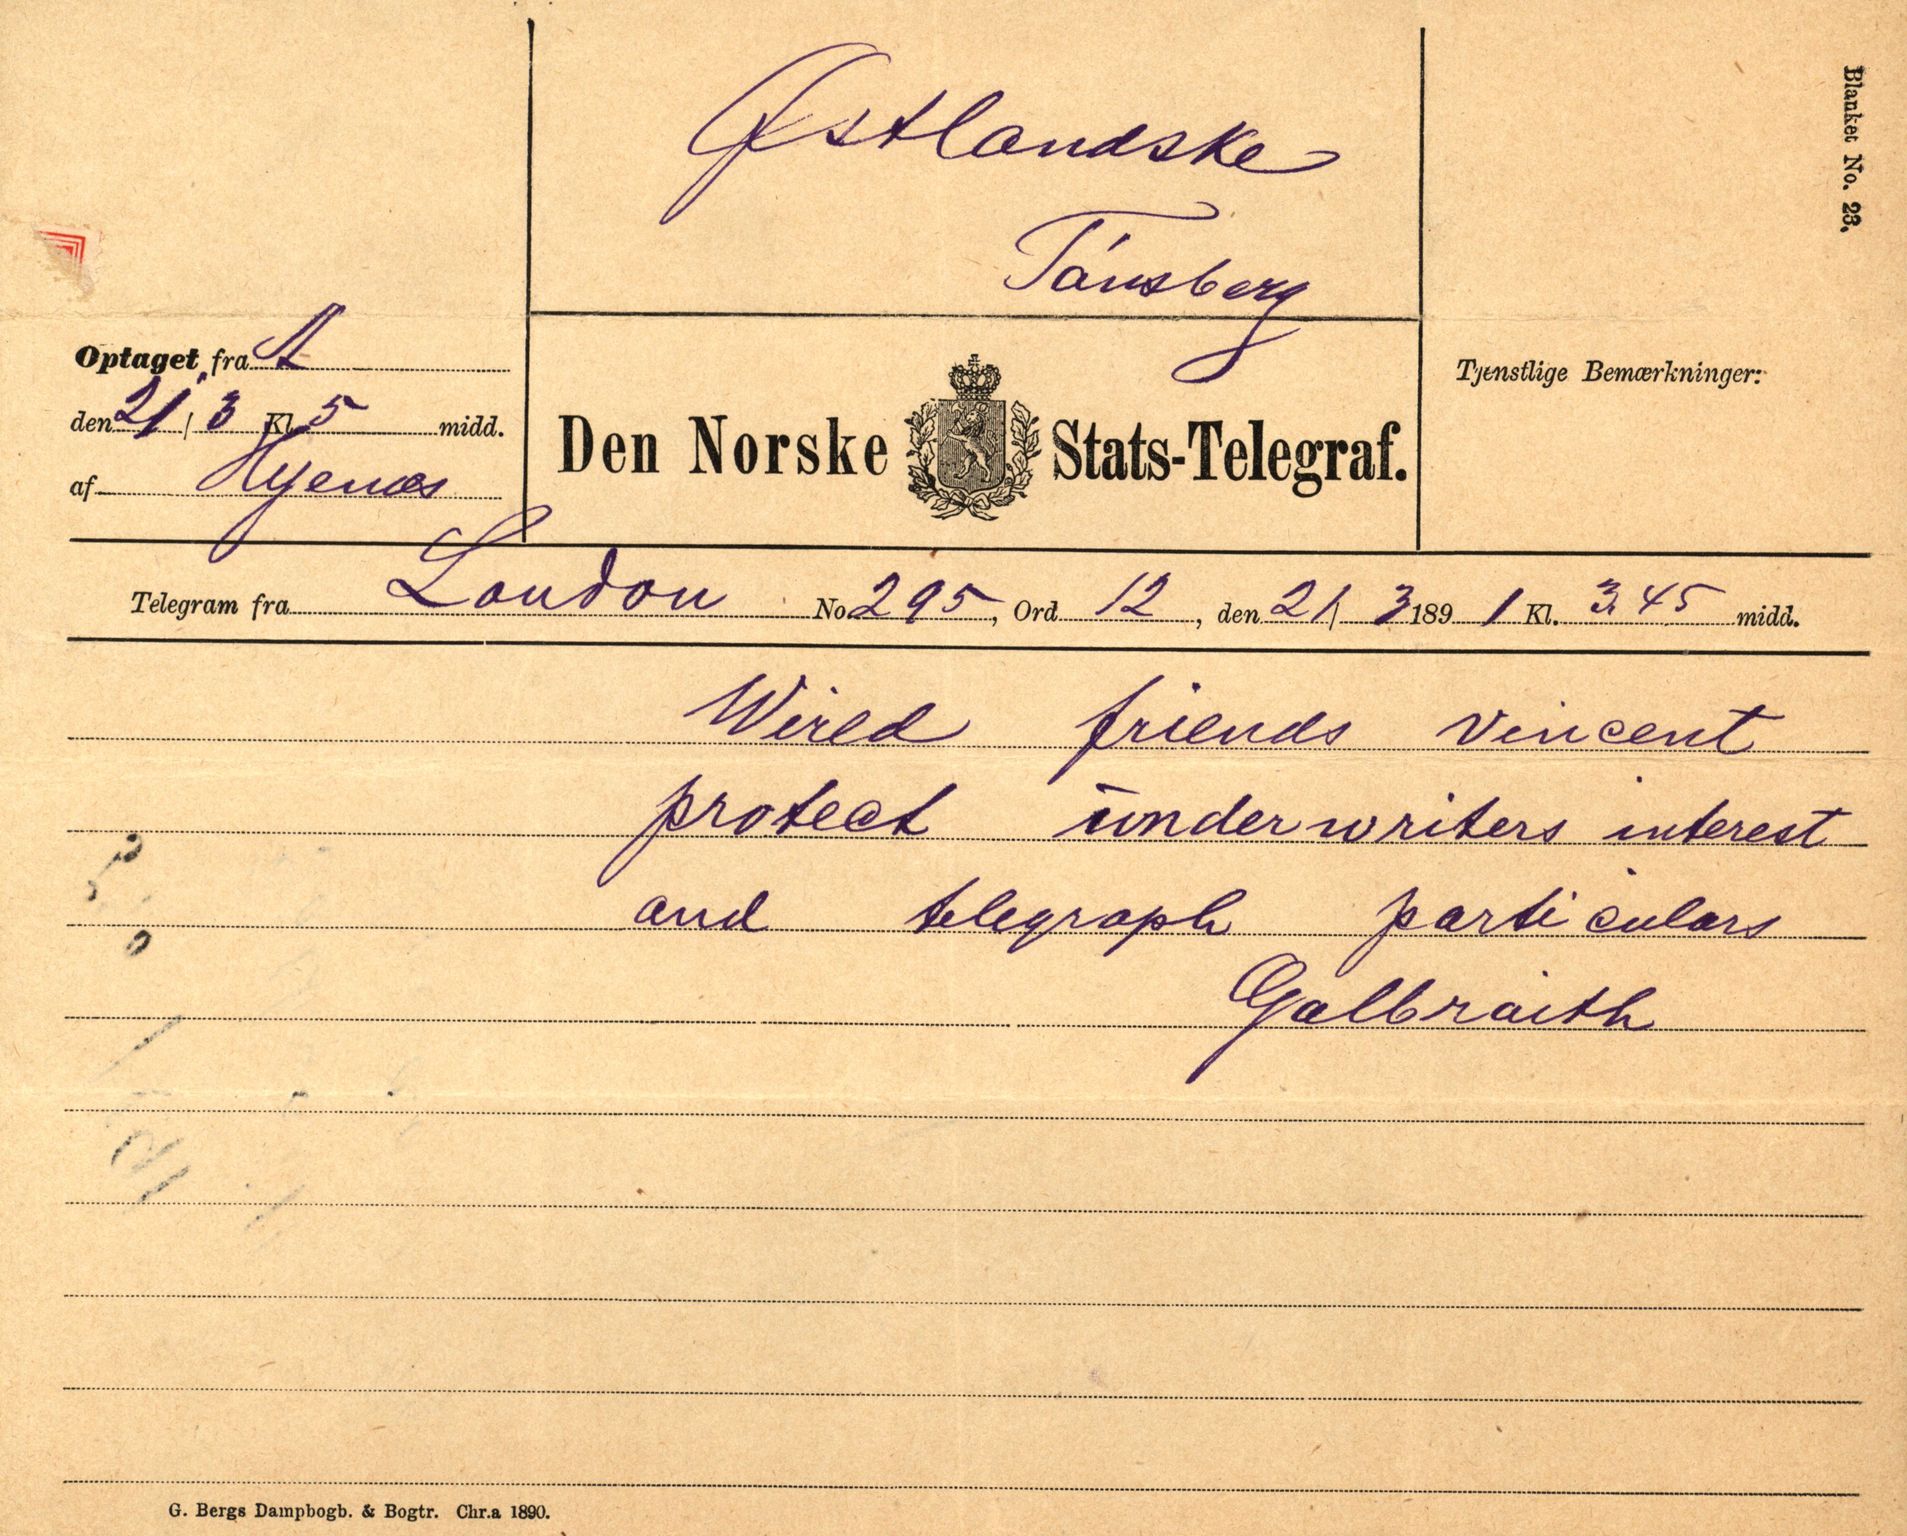 Blanket No. 23.
Østlandske
Tønsberg
Optaget fra A
den 21/3 Kl. 5 midd.
af
Den Norske Stats-Telegraf.
Tjenstlige Bemærkninger:
Telegram fra London No. 295, Ord 12, den 21/3 1891 Kl. 3.45 midd.
Wired friends vincent
protect underwriters interest
and telegraph particulars
Galbraith
G. Bergs Dampbogb. & Bogtr. Chr.a 1890.